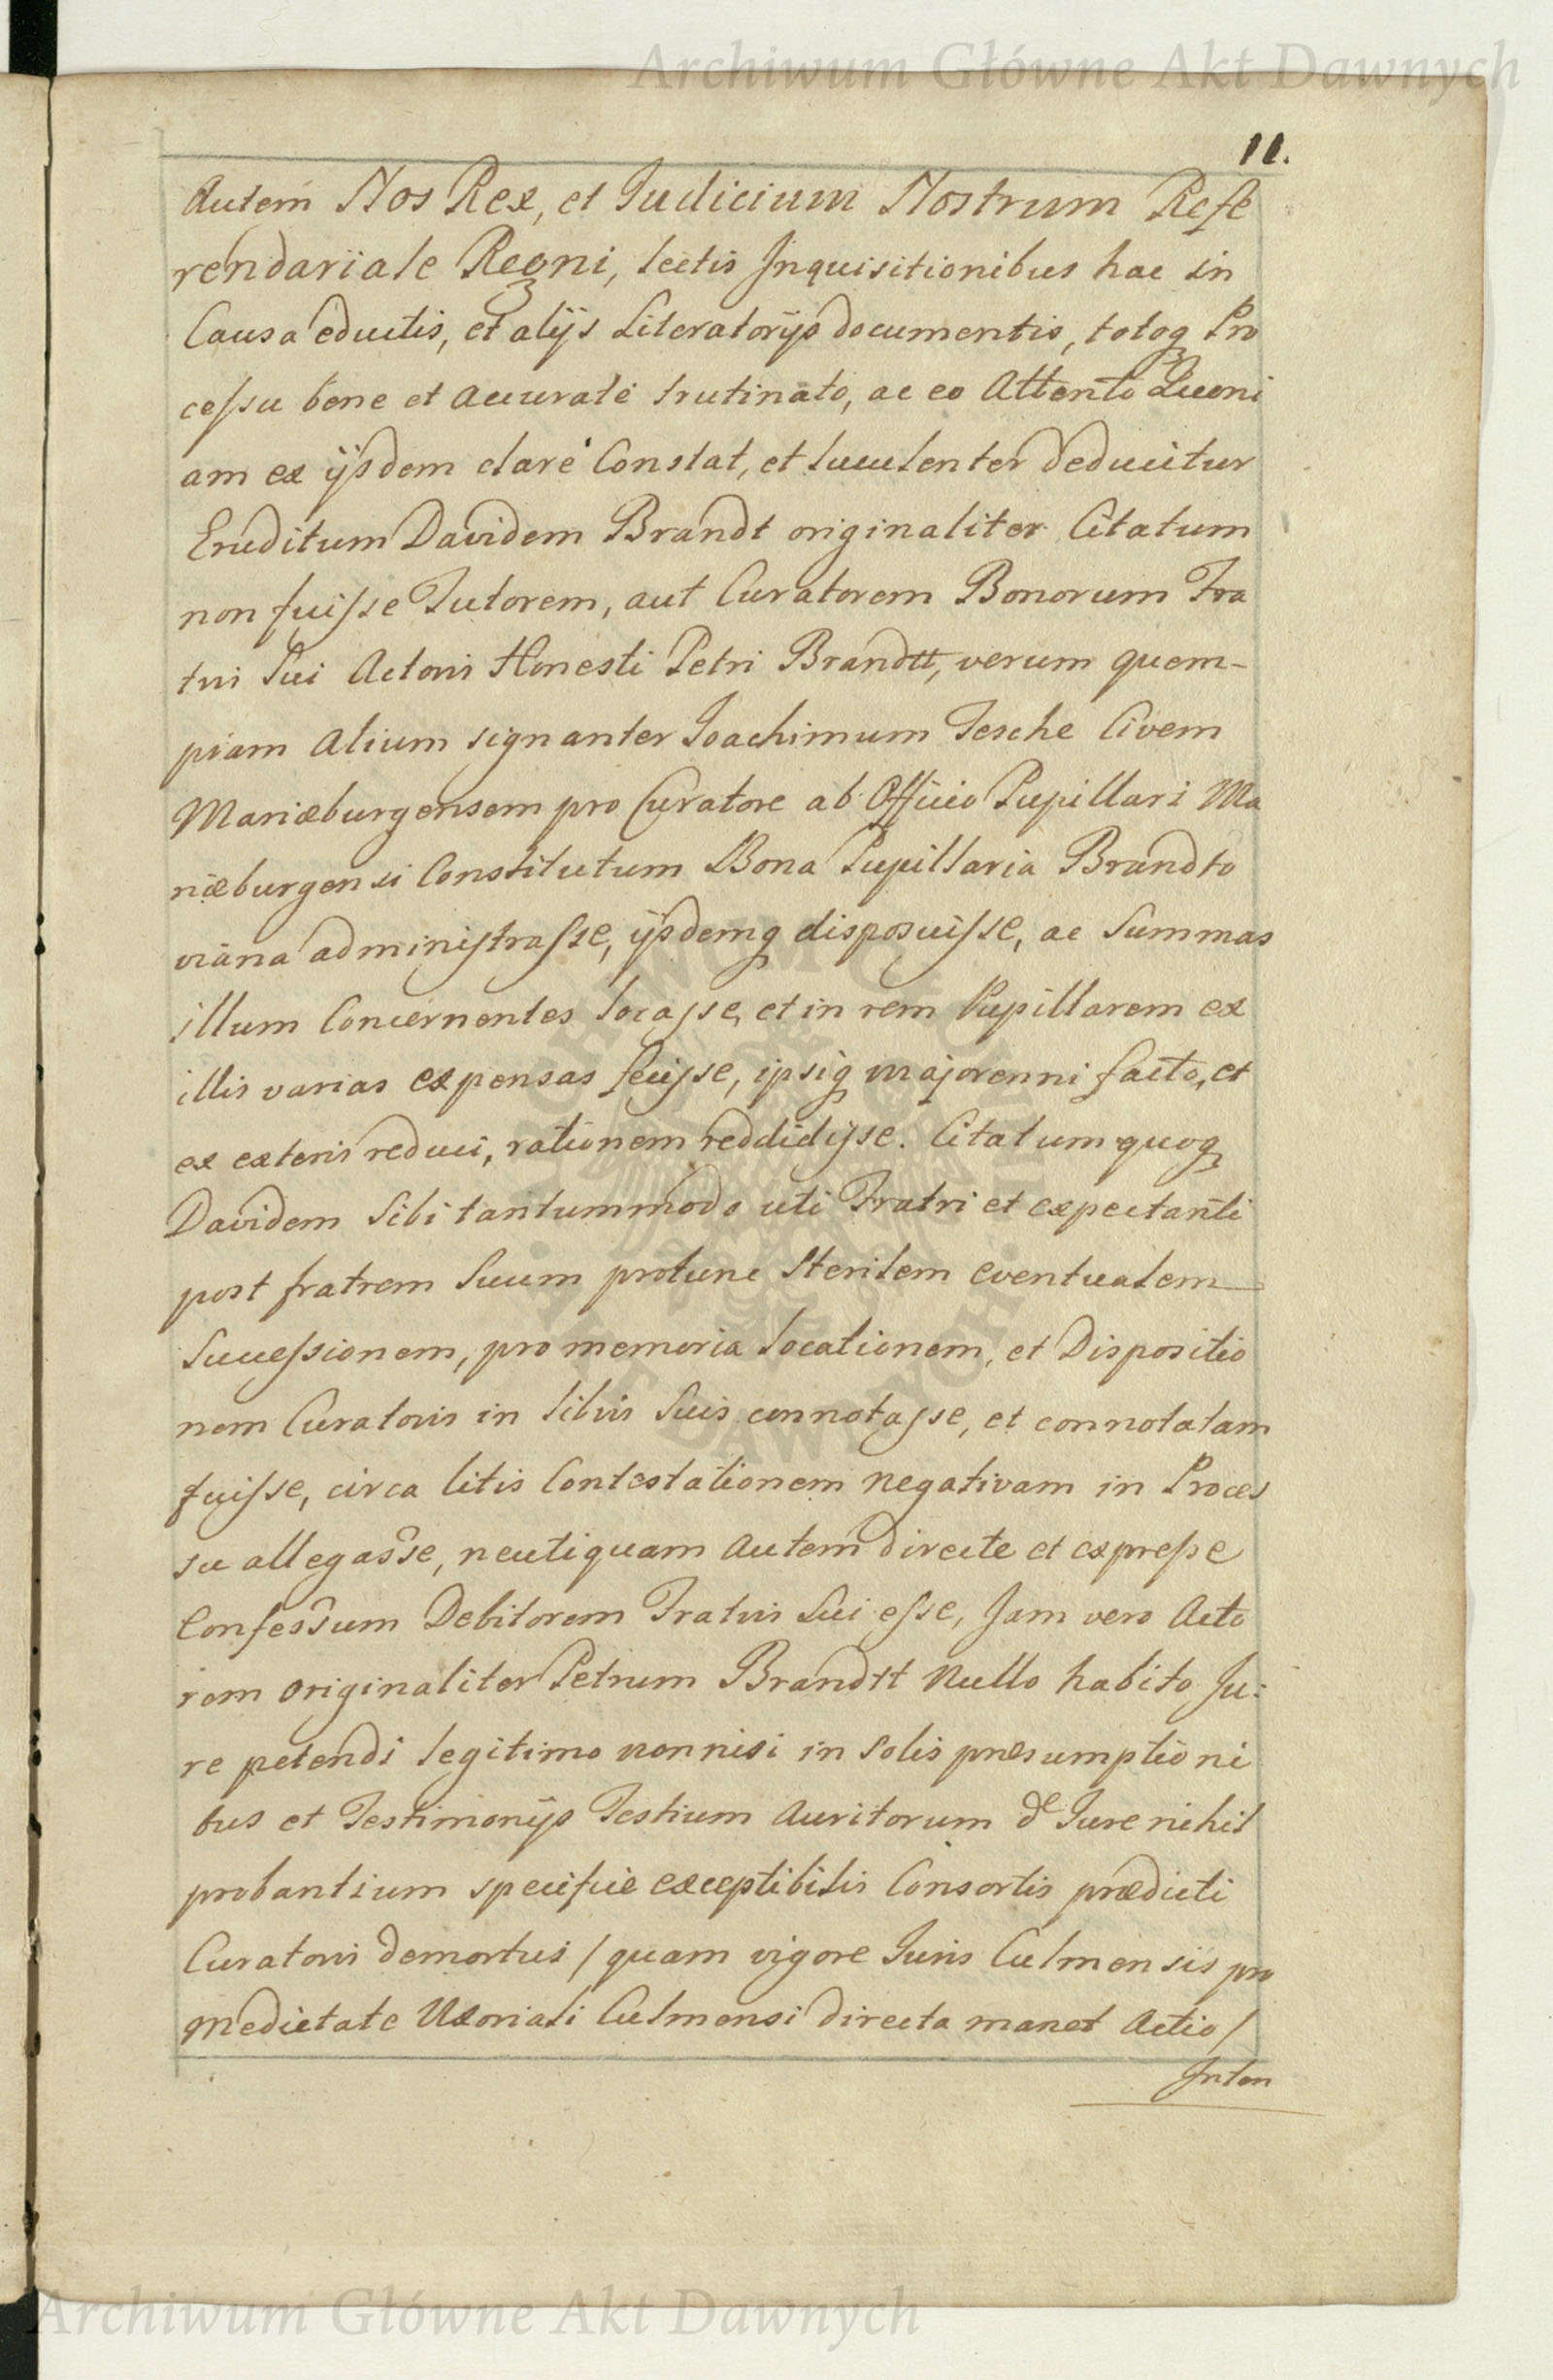 Archiwum Główne Akt Dawnych
11.
Autem Nos Rex, et Judicium Nostrum Refe
rendariale Regni, lectis Inquisitionibus hac in
Causa eductis, et alijs Literatorijs documentis, totoq Pro
cessu bene et accuraté trutinato, ac eo Attento Quoni
am ex ijsdem claré Constat, et luculenter deducitur
Eruditum Davidem Brandt originaliter Citatum
non fuisse Tutorem, aut Curatorem Bonorum Fra
tris Sui Actoris Honesti Petri Brandtt, verum quem-
piam Alium signanter Joachimum Tesche Civem
Mariæburgensem pro Curatore ab Officio Pupillari Ma
riæburgensi Constitutum Bona Pupillaria Brandto
viana administrasse, ijsdemq disposuisse, ac Summas
illum Concernentes locasse, et in rem Pupillarem ex
illis varias expensas fecisse, ipsiq majorenni facto, et
ex exteris reduci, rationem reddidisse. Citatum quoq
Davidem Sibi tantummodo uti Fratri et expectanti
post fratrem Suum protunc Sterilem eventualem
Successionem, pro memoria locationem, et Dispositio
nem Curatoris in libris Suis connotasse, et connotatam
fuisse, circa litis Contestationem negativam in Proces
su allegasse, neutiquam Autem directe et expresse
Confessum Debitorem Fratris Sui esse, Jam vero Acto
rem originaliter Petrum Brandtt Nullo habito Ju:
re petendi legitimo nonnisi in Solis præsumptioni
bus et Testimonijs Testium Auritorum de Jure nihil
probantium specifice exceptibilis Consortis prædicti
Curatoris demortui / quam vigore Juris Culmensis pro
Medietate Uxoriali Culmensi directa manet Actio /
Inten
Archiwum Główne Akt Dawnych